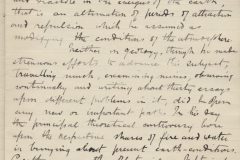 and pressure in the energies of the earth,
that is an alternation of periods of attraction
and repulsion which he assumed as
modifying the conditions of the atmosphere
Neither in geology, though he made
strenuous efforts to advance the subject,
travelling much, examining mines, observing
continually and writing about thirty essays
upon different problems in it, did he open
any new or important path. In his day
the principal theoretical controversy was
upon the respective shares of fire and water
in bringing about present earth-conditions.